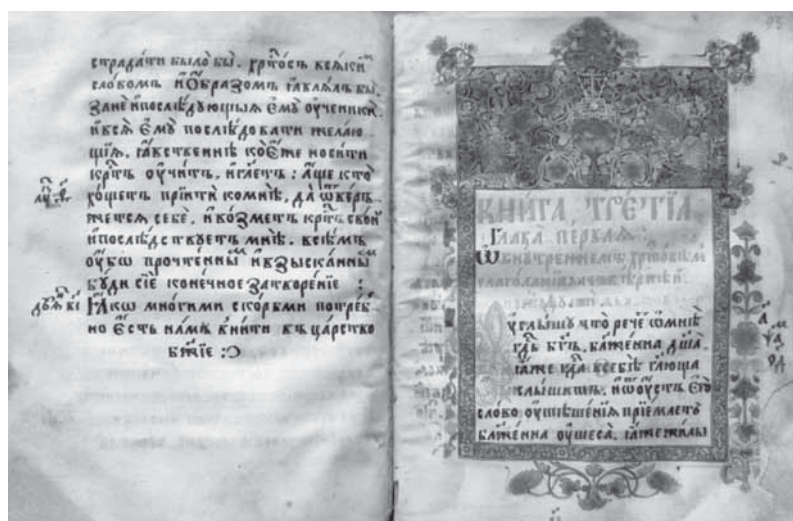 страда́ти бы́ло бы̀. хрⷭ҇то́съ вся́кимъ
сло́вомъ и҆ ѻ҆́бразомъ ꙗ҆вля́лъ бы̀.
занѐ и҆послѣ́дующыѧ є҆мꙋ̀ ᲂу҆чени́ки.
и҆всѧ̀ є҆мꙋ̀ послѣ́довати жела́ю
щїѧ. ꙗ҆́вственнѣ коє҆́же носи́ти
крⷭ҇тъ ᲂу҆чи́тъ. и҆гл҃етъ: а҆́ще кто̀
хо́щетъ прїитѝ комнѣ̀, да ѿве́р
жетсѧ себѐ. и҆во́зметъ крⷭ҇тъ сво́й
и҆послѣ́дствꙋетъ мнѣ̀. всѣ́мъ
ᲂу҆̀бѡ прочте́нным и҆взы́сканным
бꙋ́ди сїѐ коне́чное затворе́нїе :
ꙗ҆́кѡ мно́гими скорбмѝ потре́б
но є҆́сть на́мъ вни́ти въ ца́рство
бж҃їе :
95
КНИ́ГА ТРЕ́ТЇѦ
Глава̀ пе́рваѧ:
Ѡ внꙋ́треннемъ хрⷭ҇то́вѣмъ
глаго́ланїи
ᲂу҆слы́шꙋ что̀ рече́ ѡ҆мнѣ̀
гдⷭ҇ь бг҃ъ. бл҃же́нна дш҃а̀.
ꙗ҆́же гдⷭ҇а всебѣ̀ гл҃юща
слы́шитъ. и҆ѿᲂу҆́стъ є҆гѡ̀
сло́во ᲂу҆тѣше́нїѧ прїе́млетъ
бл҃же́нна ᲂу҆шеса̀. ꙗ҆́же жилы